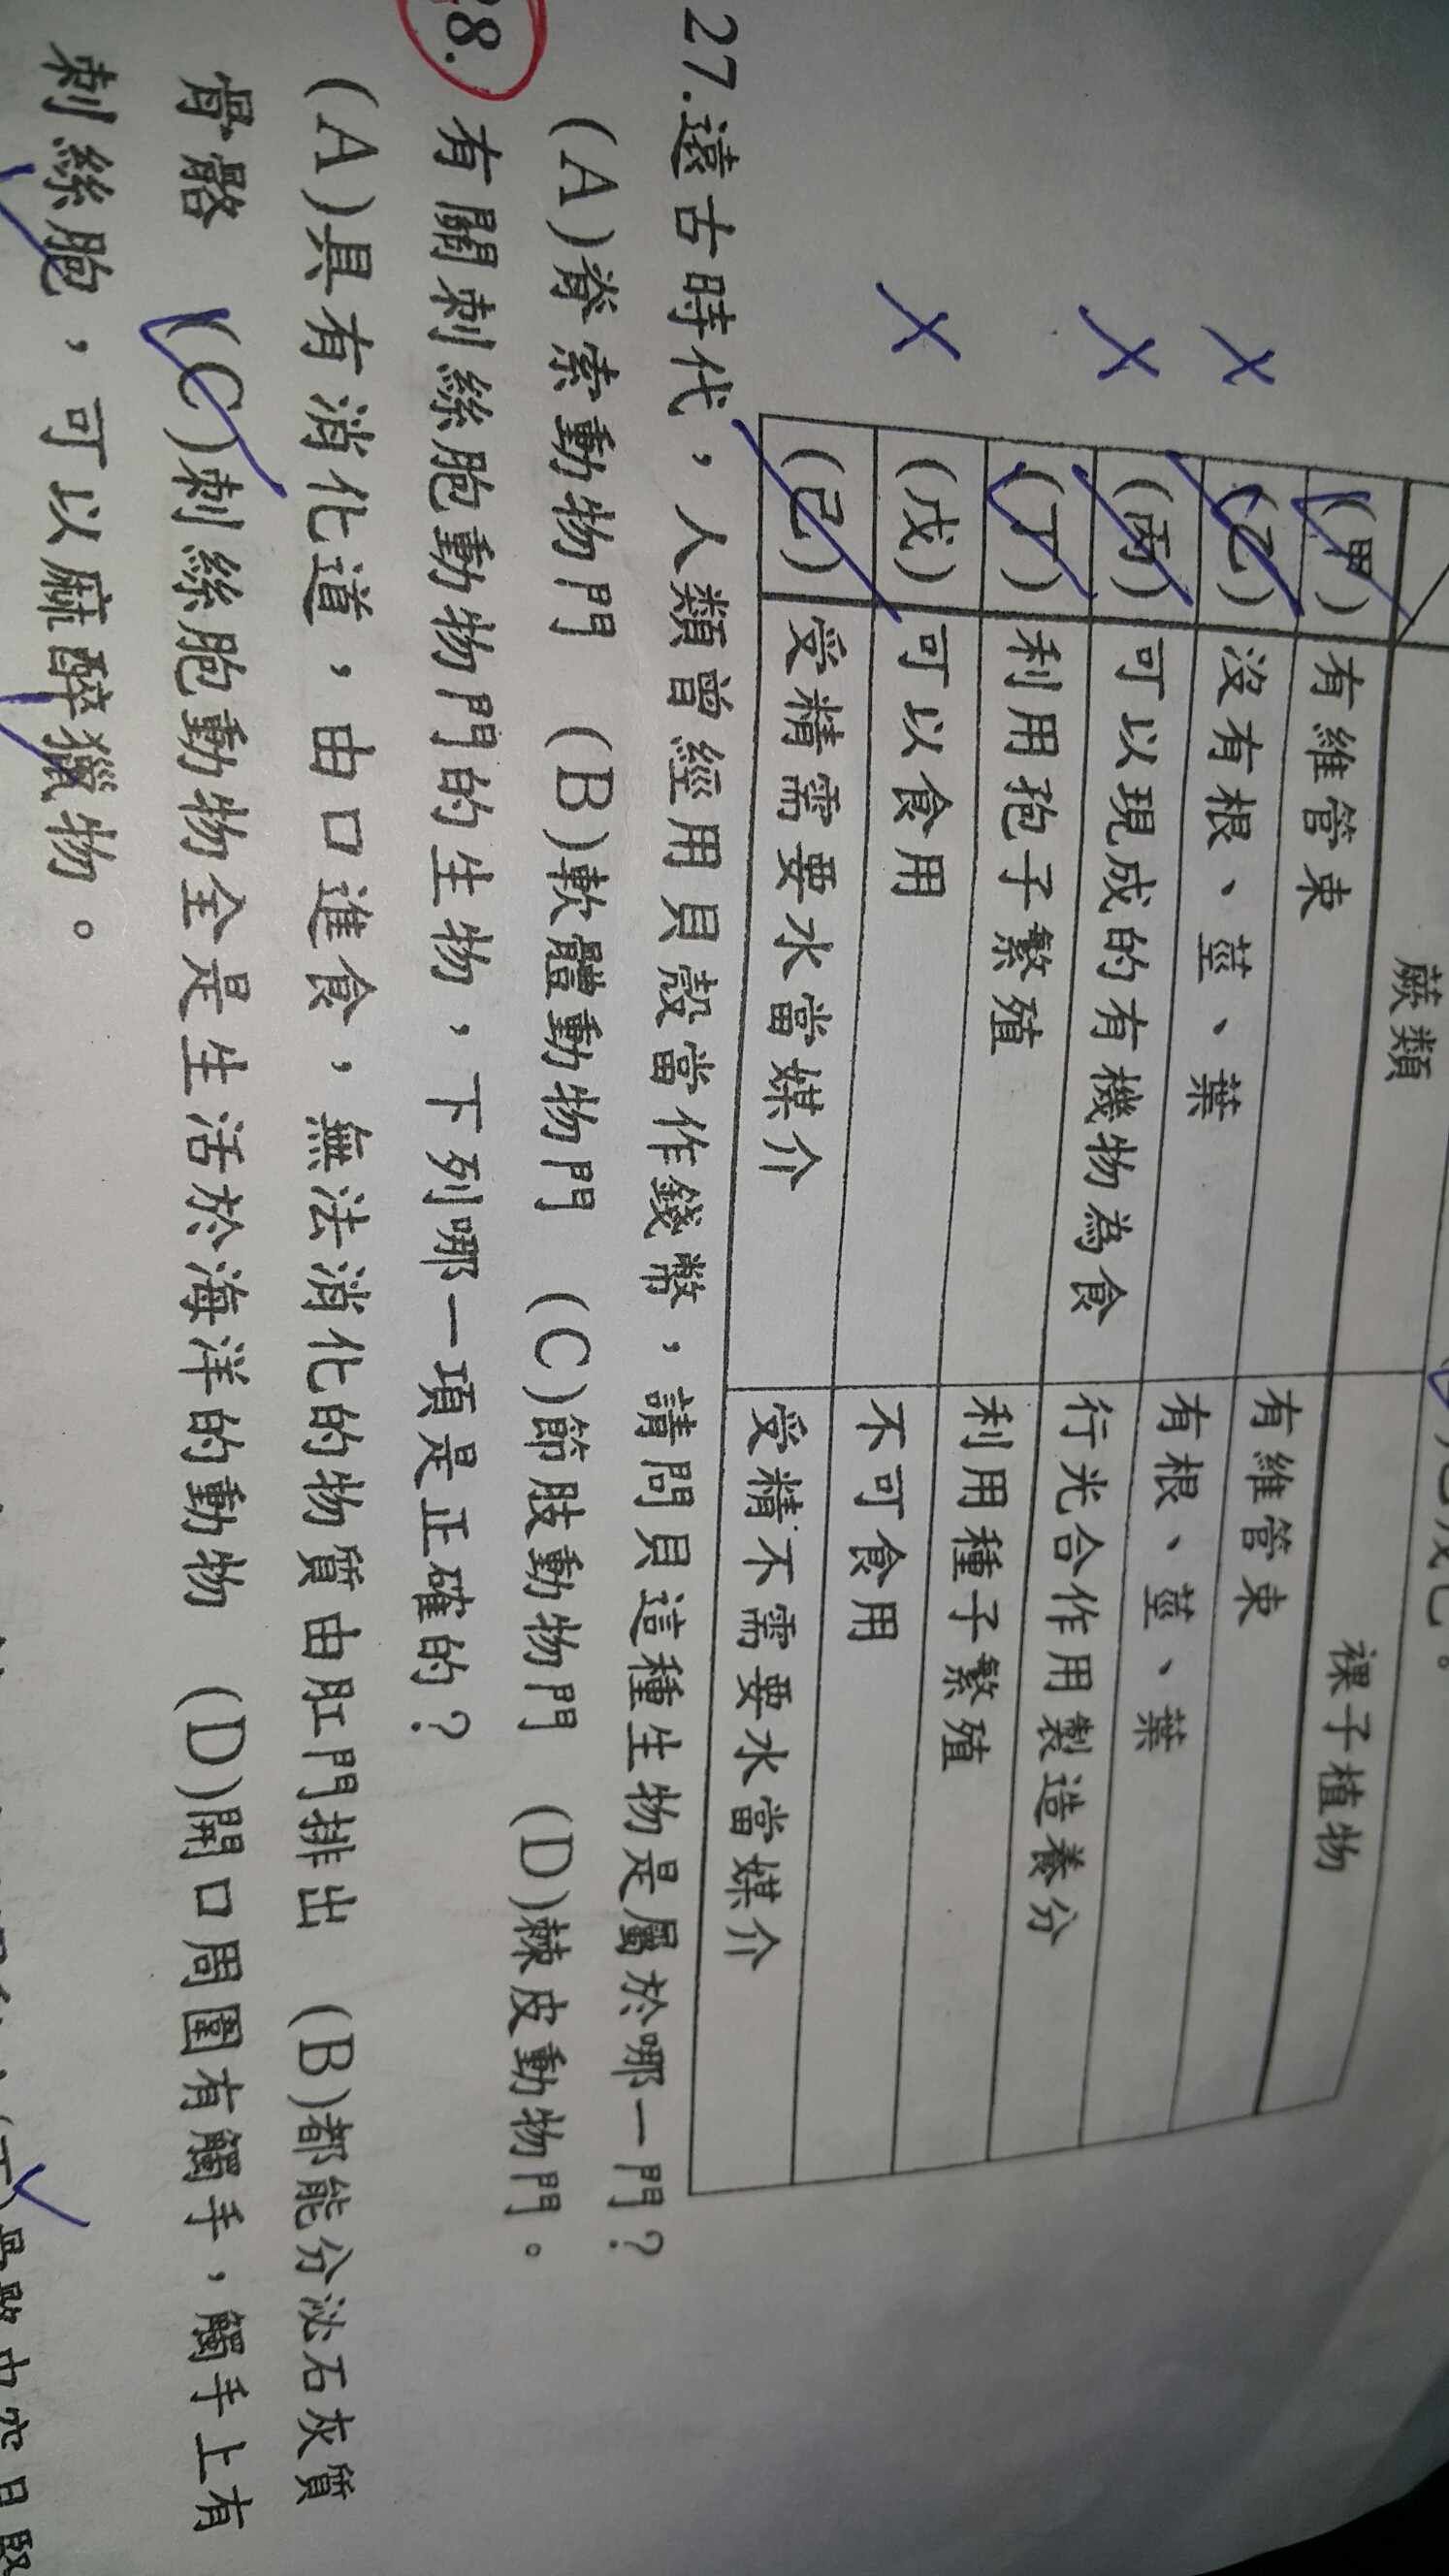 蕨類 裸子植物
(甲) 有維管束 有維管束
(乙) 沒有根、莖、葉 有根、莖、葉
(丙) 可以現成的有機物為食 行光合作用製造養分
(丁) 利用孢子繁殖 利用種子繁殖
(戊) 可以食用 不可食用
(己) 受精需要水當媒介 受精不需要水當媒介
27.遠古時代，人類曾經用貝殼當作錢幣，請問貝這種生物是屬於哪一門？
(A)脊索動物門 (B)軟體動物門 (C)節肢動物門 (D)棘皮動物門。
8.有關刺絲胞動物門的生物，下列哪一項是正確的？
(A)具有消化道，由口進食，無法消化的物質由肛門排出 (B)都能分泌石灰質
骨骼 (C)刺絲胞動物全是生活於海洋的動物 (D)開口周圍有觸手，觸手上有
刺絲胞，可以麻醉獵物。